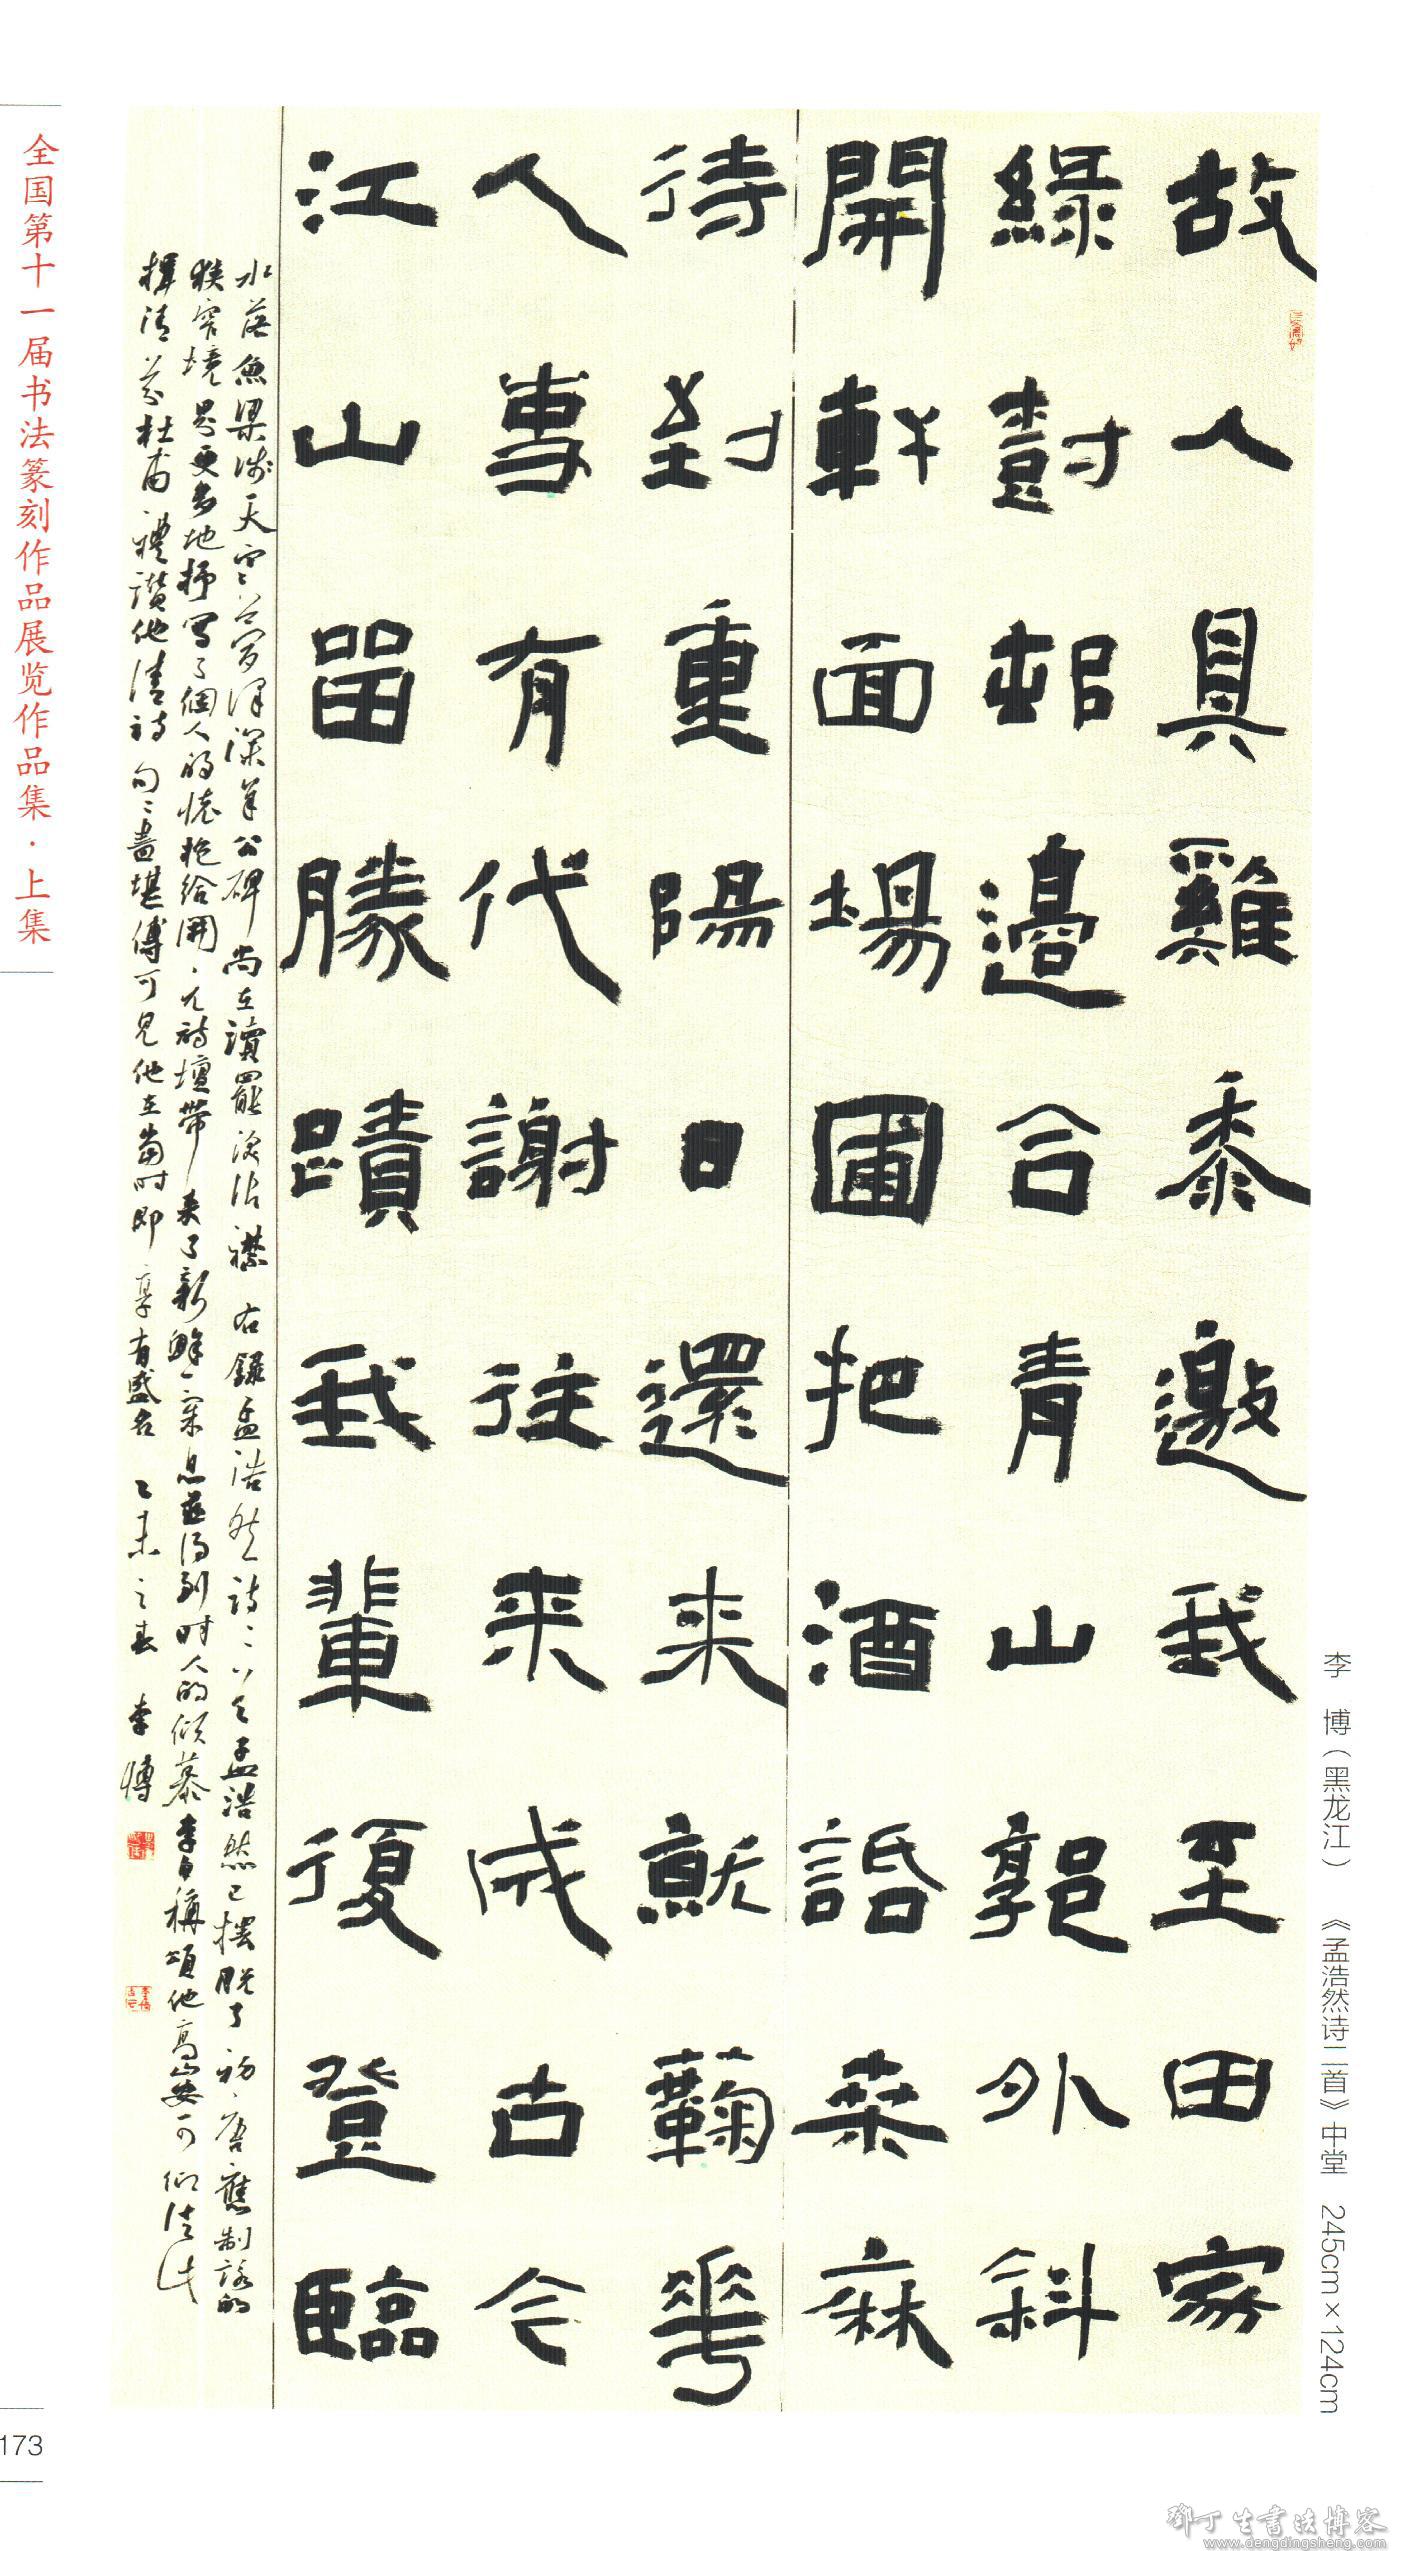 故人具雞黍邀我至田家
綠尌邨邊合青山郭外斜
開軒面場圃把酒話桒麻
待到重陽日還来就蘜華
人事有代謝往来成古今
江山留勝蹟我輩復登臨
水落魚梁淺天寒夢澤深羊公碑尚在讀罷淚沾襟 右録孟浩然詩二首 孟浩然已擺脫了初唐應制詠的
狹窄境界更多地抒寫了個人的懷抱給開元詩壇帶来了新鮮氣息並得到時人的傾慕李白稱頌他高山安可仰徒此
揖清芬杜甫禮讚他清詩句〻盡堪傳可見他在當时即享有盛名 乙未之春 李博
李 博（黑龙江） 《孟浩然诗二首》中堂 245cm×124cm
全国第十一届书法篆刻作品展览作品集·上集
173
邓丁生书法博客
www.dengdingsheng.com